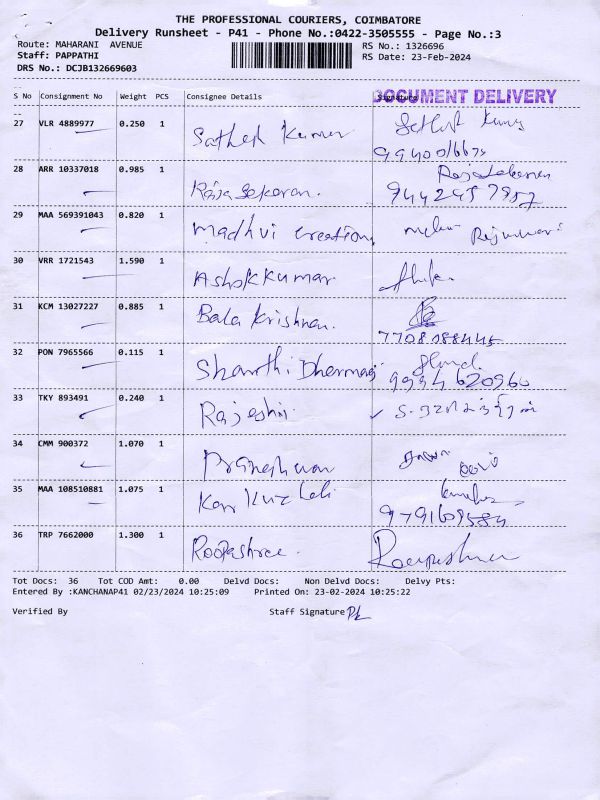 THE PROFESSIONAL COURIERS, COIMBATORE
Delivery Runsheet - P41 - Phone No.:0422-3505555 - Page No.:3
Route: MAHARANI AVENUE RS No.: 1326696
Staff: PAPPATHI RS Date: 23-Feb-2024
DRS No.: DCJB132669603
S No Consignment No Weight PCS Consignee Details Signature DOCUMENT DELIVERY
27 VLR 4889977 0.250 1 Sathesh Kumar
28 ARR 10337018 0.985 1 Raja Sekaran.
9442457957
29 MAA 569391043 0.820 1 Madhvi creation
30 VRR 1721543 1.590 1 Ashok Kumar
31 KCM 13027227 0.885 1 Bala Krishnan.
7708088445
32 PON 7965566 0.115 1 Shanthi Dhermaraj
9994620960
33 TKY 893491 0.240 1
34 CMM 900372 1.070 1
35 MAA 108510881 1.075 1
9791609584
36 TRP 7662000 1.300 1 Roopashree.
Tot Docs: 36 Tot COD Amt: 0.00 Delvd Docs: Non Delvd Docs: Delvy Pts:
Entered By :KANCHANAP41 02/23/2024 10:25:09 Printed On: 23-02-2024 10:25:22
Verified By Staff Signature